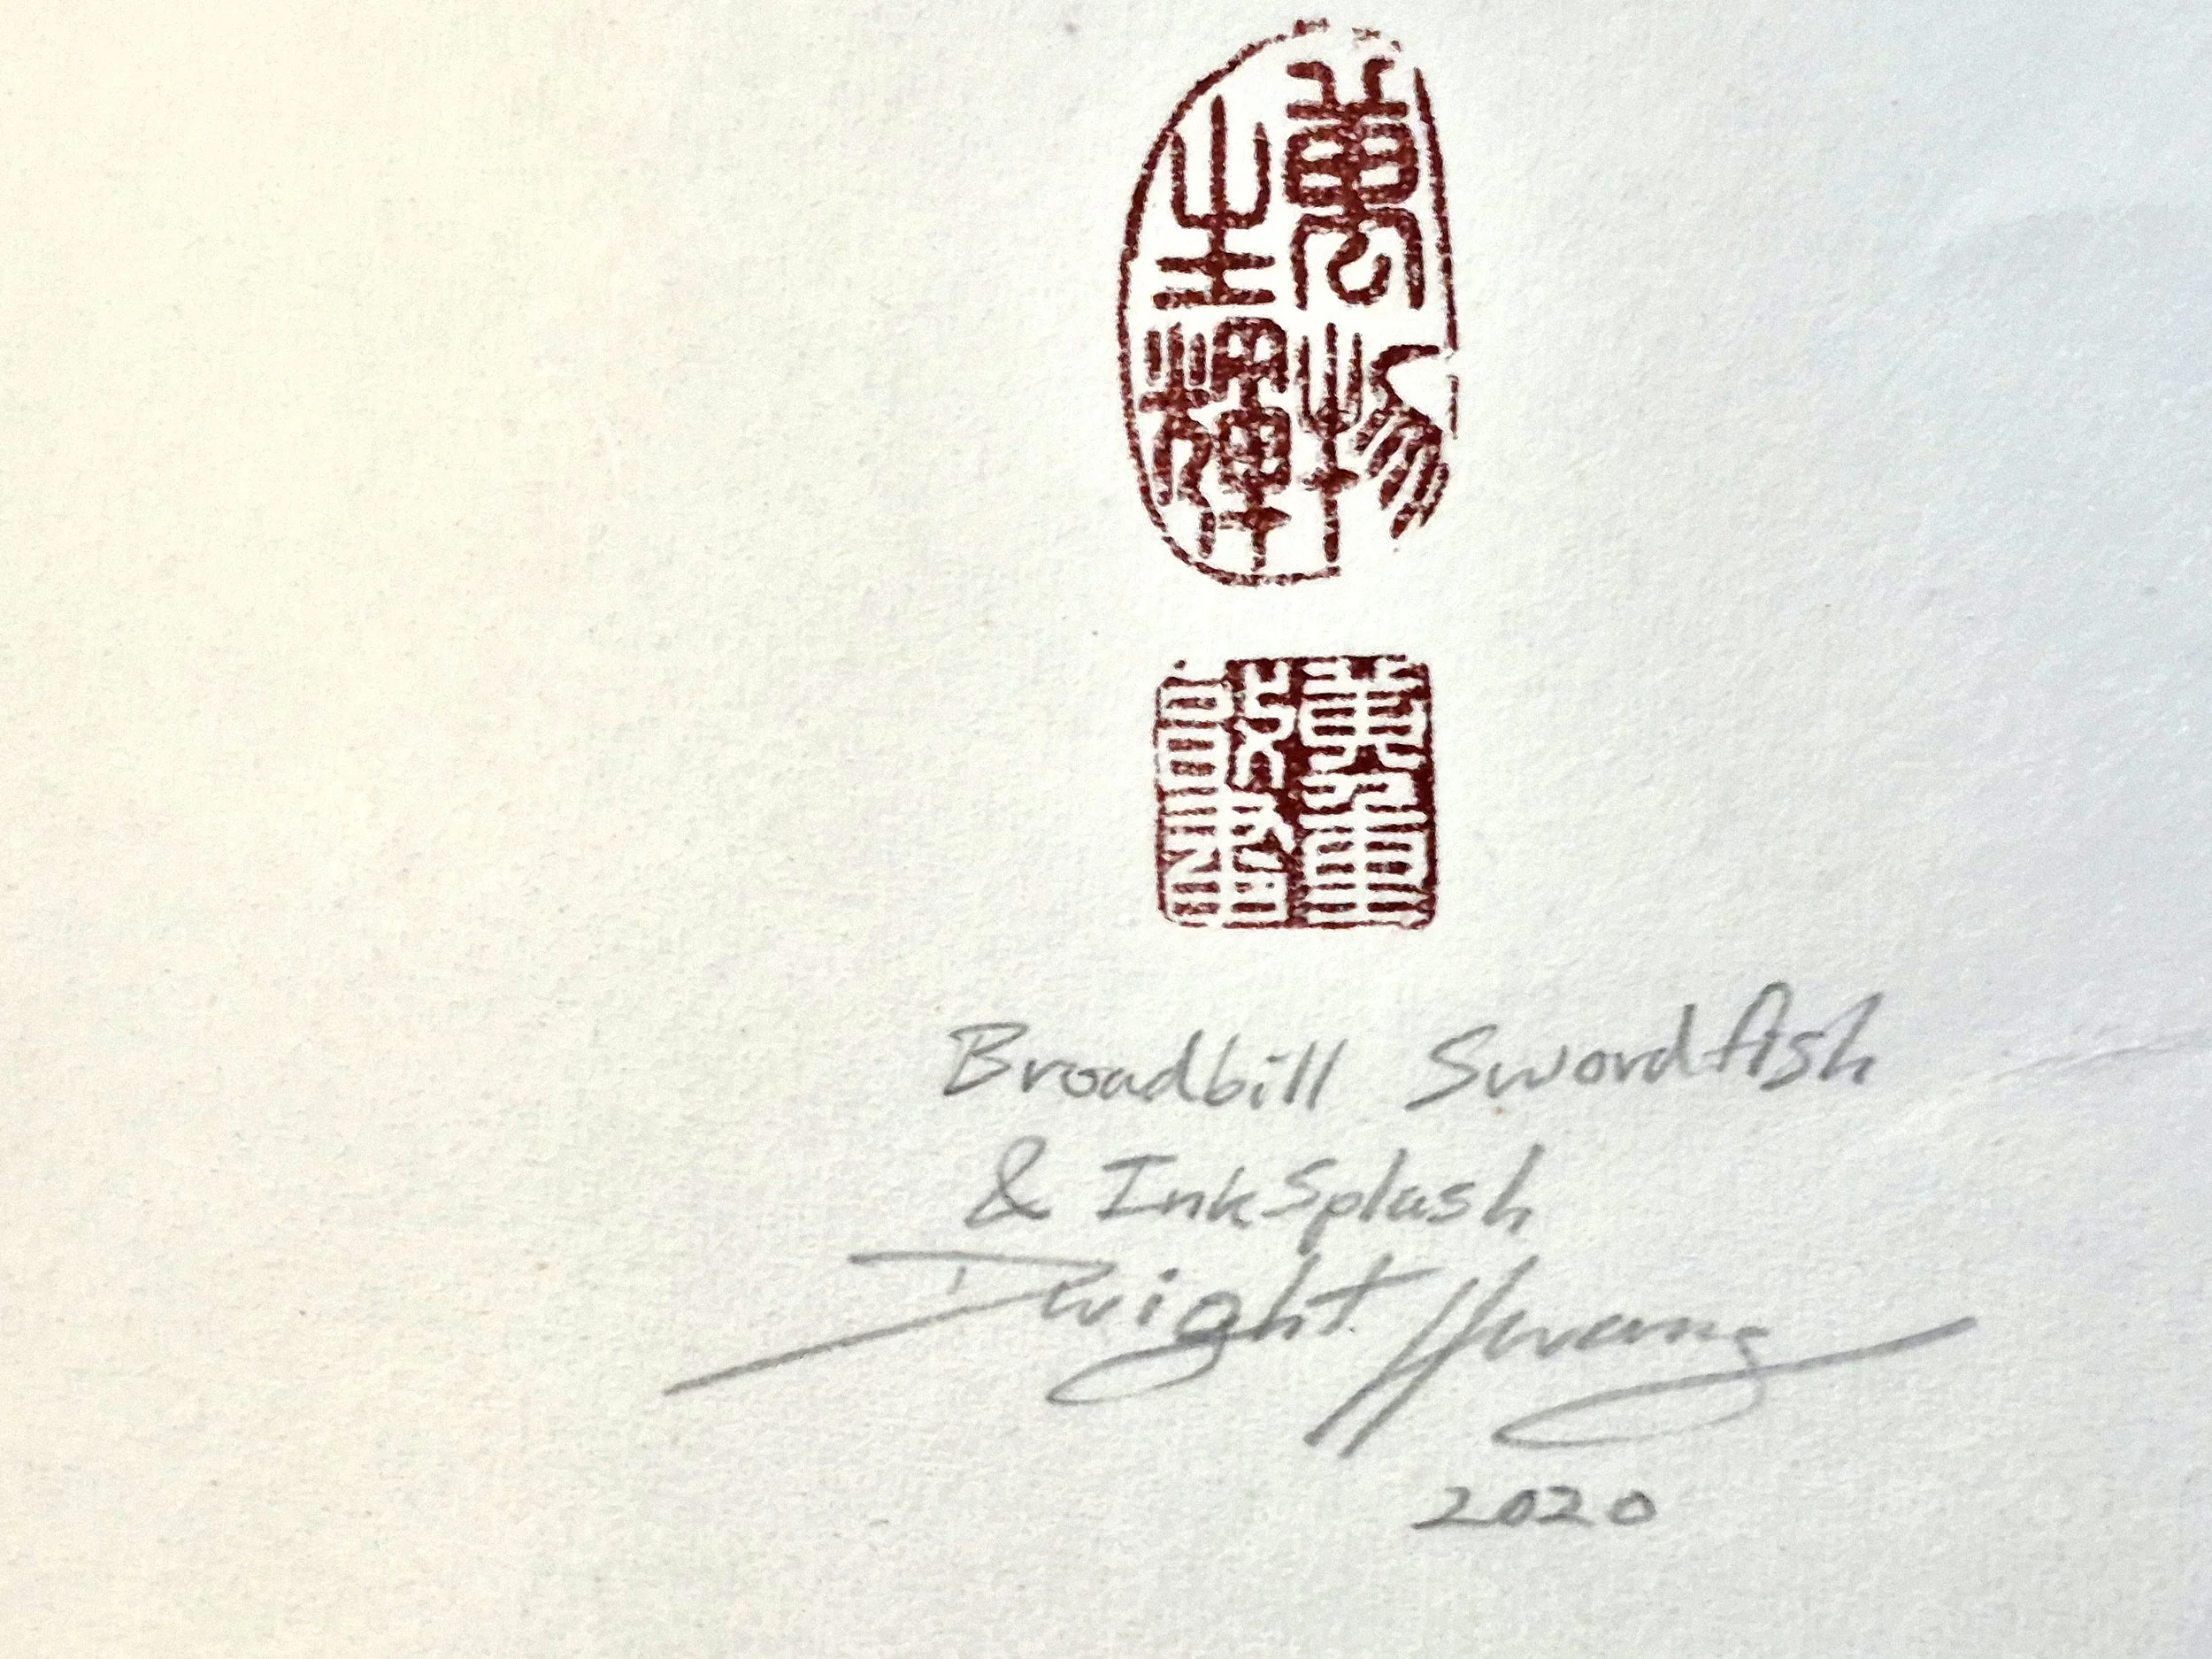 萬物
生輝
Broadbill Swordfish
& InkSplash
Dwight Hwang
2020